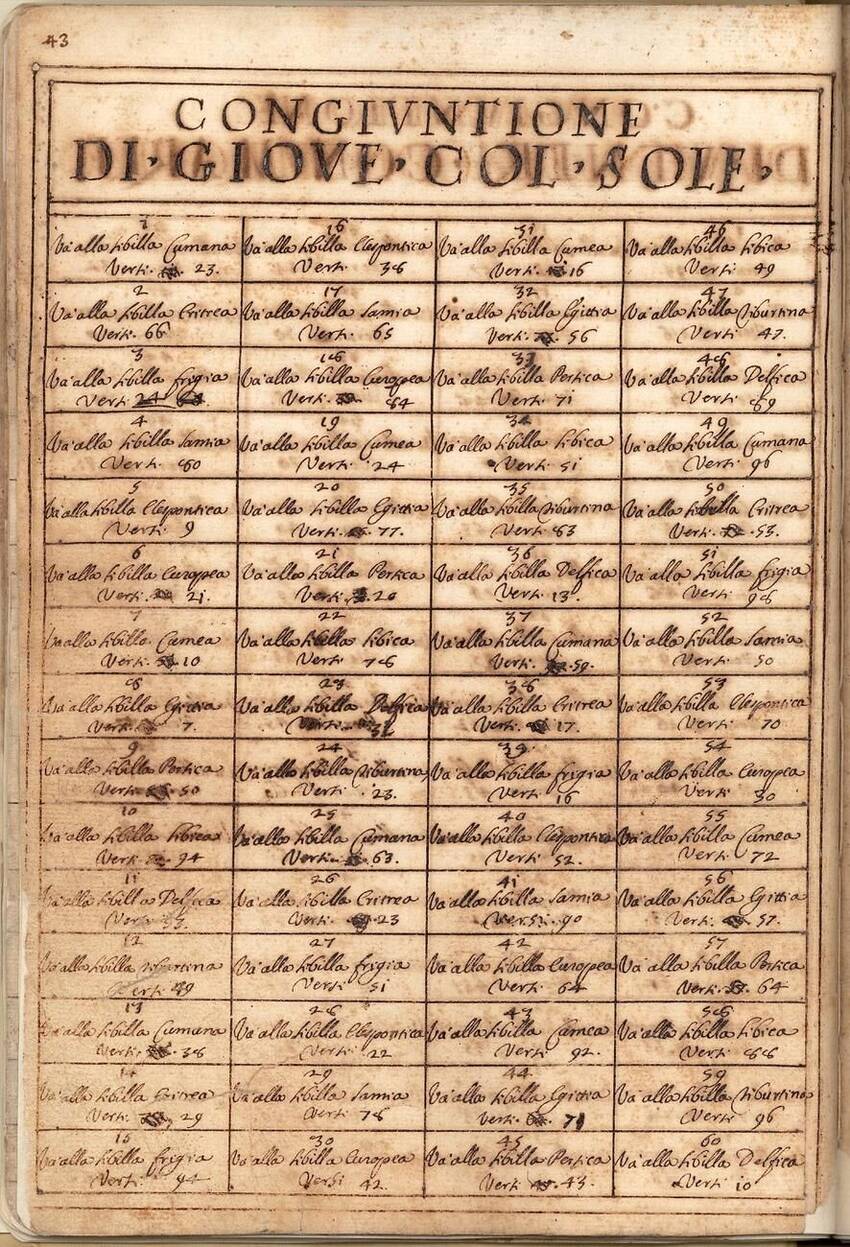 43
CONGIVNTIONE
DI · GIOVE · COL · SOLE ·
1
Va' alla Sibilla Cumana
Versi. 23.
2
Va' alla Sibilla Eritrea
Versi. 66
3
Va' alla Sibilla frigia
Versi 24
4
Va' alla Sibilla Samia
Versi. 80
5
Va' alla Sibilla Elespontica
Versi. 9
6
Va' alla Sibilla Europea
Versi. 21.
7
Va' alla Sibilla Cumea
Versi. 10
8
Va' alla Sibilla Egittia
Versi. 7.
9
Va' alla Sibilla Persica
Versi. 50
10
Va' alla Sibilla Libica
Versi. 94
11
Va' alla Sibilla Delfica
Versi 53.
12
Va' alla Sibilla Tiburtina
Versi 49
13
Va' alla Sibilla Cumana
Versi. 38
14
Va' alla Sibilla Eritrea
Versi. 29
15
Va' alla Sibilla frigia
Versi 94
16
Va' alla Sibilla Elespontica
Versi 38
17
Va' alla Sibilla Samia
Versi. 65
18
Va' alla Sibilla Europea
Versi. 84
19
Va' alla Sibilla Cumea
Versi. 24
20
Va' alla Sibilla Egittia
Versi. 77.
21
Va' alla Sibilla Persica
Versi. 20
22
Va' alla Sibilla Libica
Versi 78
23
Va' alla Sibilla Delfica
Versi. 32
24
Va' alla Sibilla Tiburtina
Versi. 23.
25
Va' alla Sibilla Cumana
Versi. 63.
26
Va' alla Sibilla Eritrea
Versi. 23
27
Va' alla Sibilla frigia
Versi 51
28
Va' alla Sibilla Elespontica
Versi 22
29
Va' alla Sibilla Samia
Versi. 78
30
Va' alla Sibilla Europea
Versi 42.
31
Va' alla Sibilla Cumea
Versi. 16
32
Va' alla Sibilla Egittia
Versi. 56
33
Va' alla Sibilla Persica
Versi. 71
34
Va' alla Sibilla Libica
Versi. 51
35
Va' alla Sibilla Tiburtina
Versi. 83
36
Va' alla Sibilla Delfica
Versi. 13.
37
Va' alla Sibilla Cumana
Versi. 59.
38
Va' alla Sibilla Eritrea
Versi. 17.
39.
Va' alla Sibilla frigia
Versi. 16
40
Va' alla Sibilla Elespontica
Versi. 52.
41
Va' alla Sibilla Samia
Versi. 90
42
Va' alla Sibilla Europea
Versi. 64
43
Va' alla Sibilla Cumea
Versi 92.
44
Va' alla Sibilla Egittia
Versi. 71
45
Va' alla Sibilla Persica
Versi. 43.
46
Va' alla Sibilla Libica
Versi 49
47
Va' alla Sibilla Tiburtina
Versi 47.
48
Va' alla Sibilla Delfica
Versi 89
49
Va' alla Sibilla Cumana
Versi. 96
50
Va' alla Sibilla Eritrea
Versi. 53.
51
Va' alla Sibilla frigia
Versi 98
52
Va' alla Sibilla Samia
Versi 50
53
Va' alla Sibilla Elespontica
Versi 70
54
Va' alla Sibilla Europea
Versi 30
55
Va' alla Sibilla Cumea
Versi. 72
56
Va' alla Sibilla Egittia
Versi. 57.
57
Va' alla Sibilla Persica
Versi. 64
58
Va' alla Sibilla Libica
Versi 88
59
Va' alla Sibilla Tiburtina
Versi 96
60
Va' alla Sibilla Delfica
Versi 10